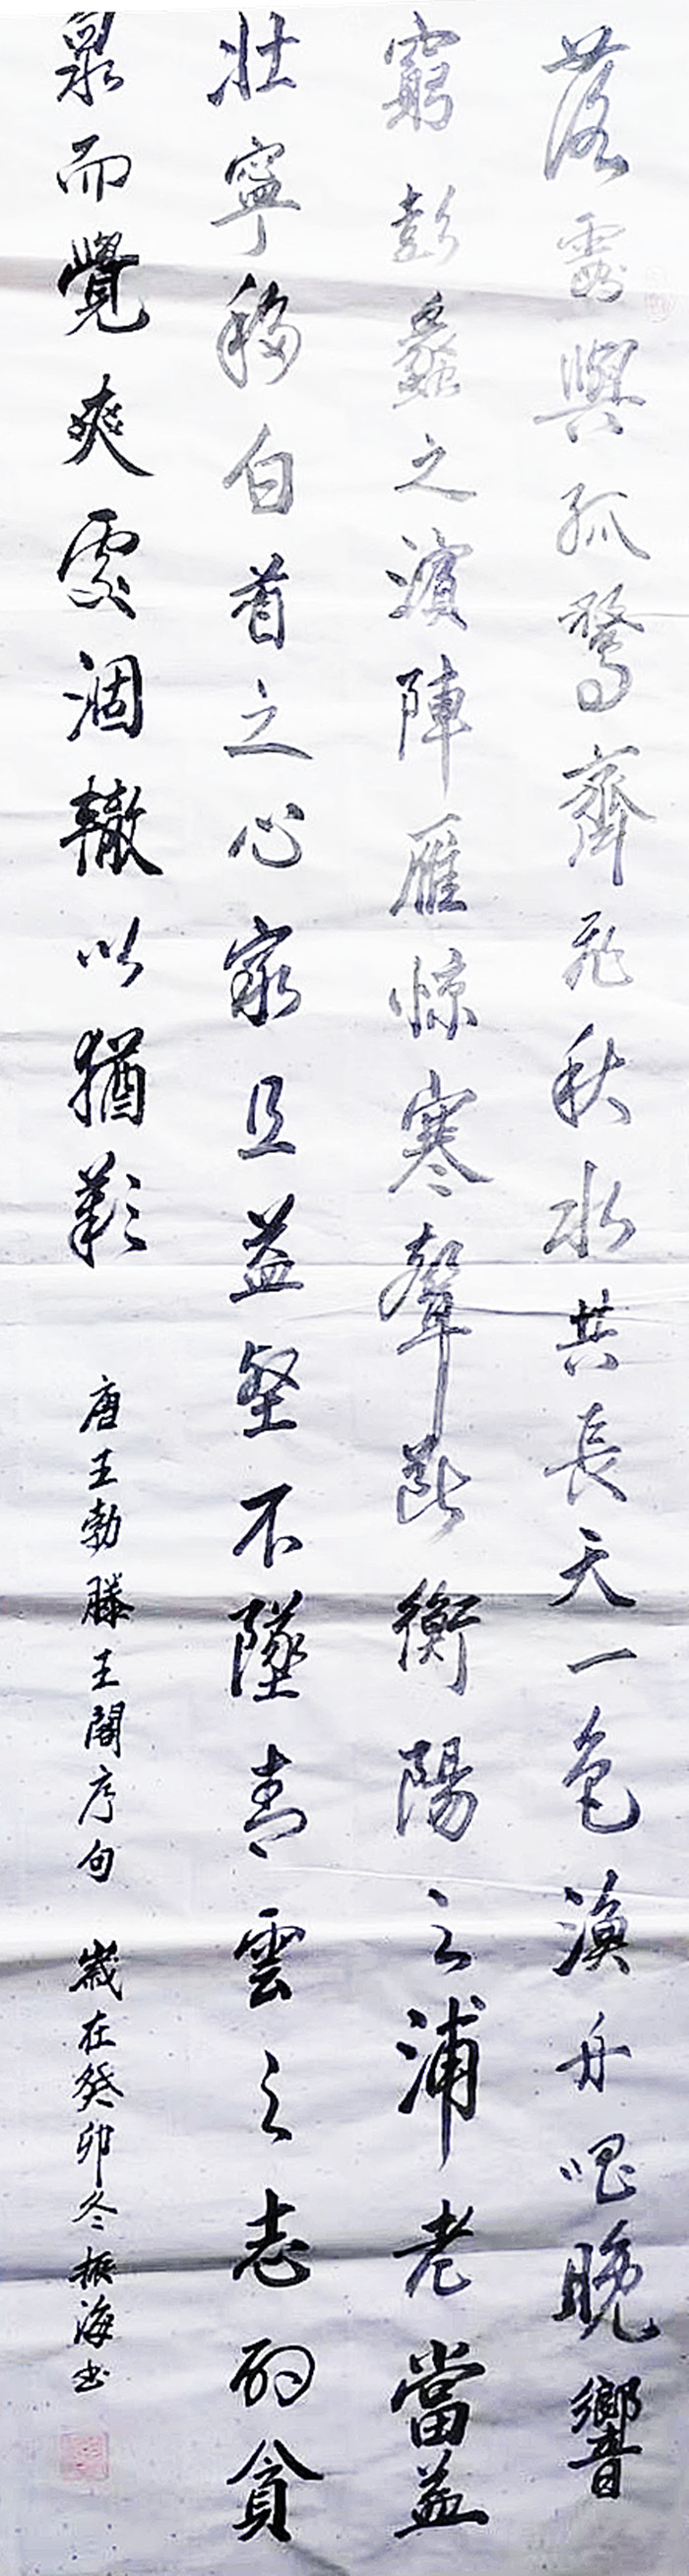 落霞與孤鶩齊飛秋水共長天一色漁舟唱晚響
窮彭蠡之濱陣雁惊寒聲斷衡陽之浦老當益
壯寧移白首之心家且益堅不墜青雲之志酌貪
泉而覺爽處涸轍以猶歡
唐王勃滕王閣序句 歲在癸卯冬振海书